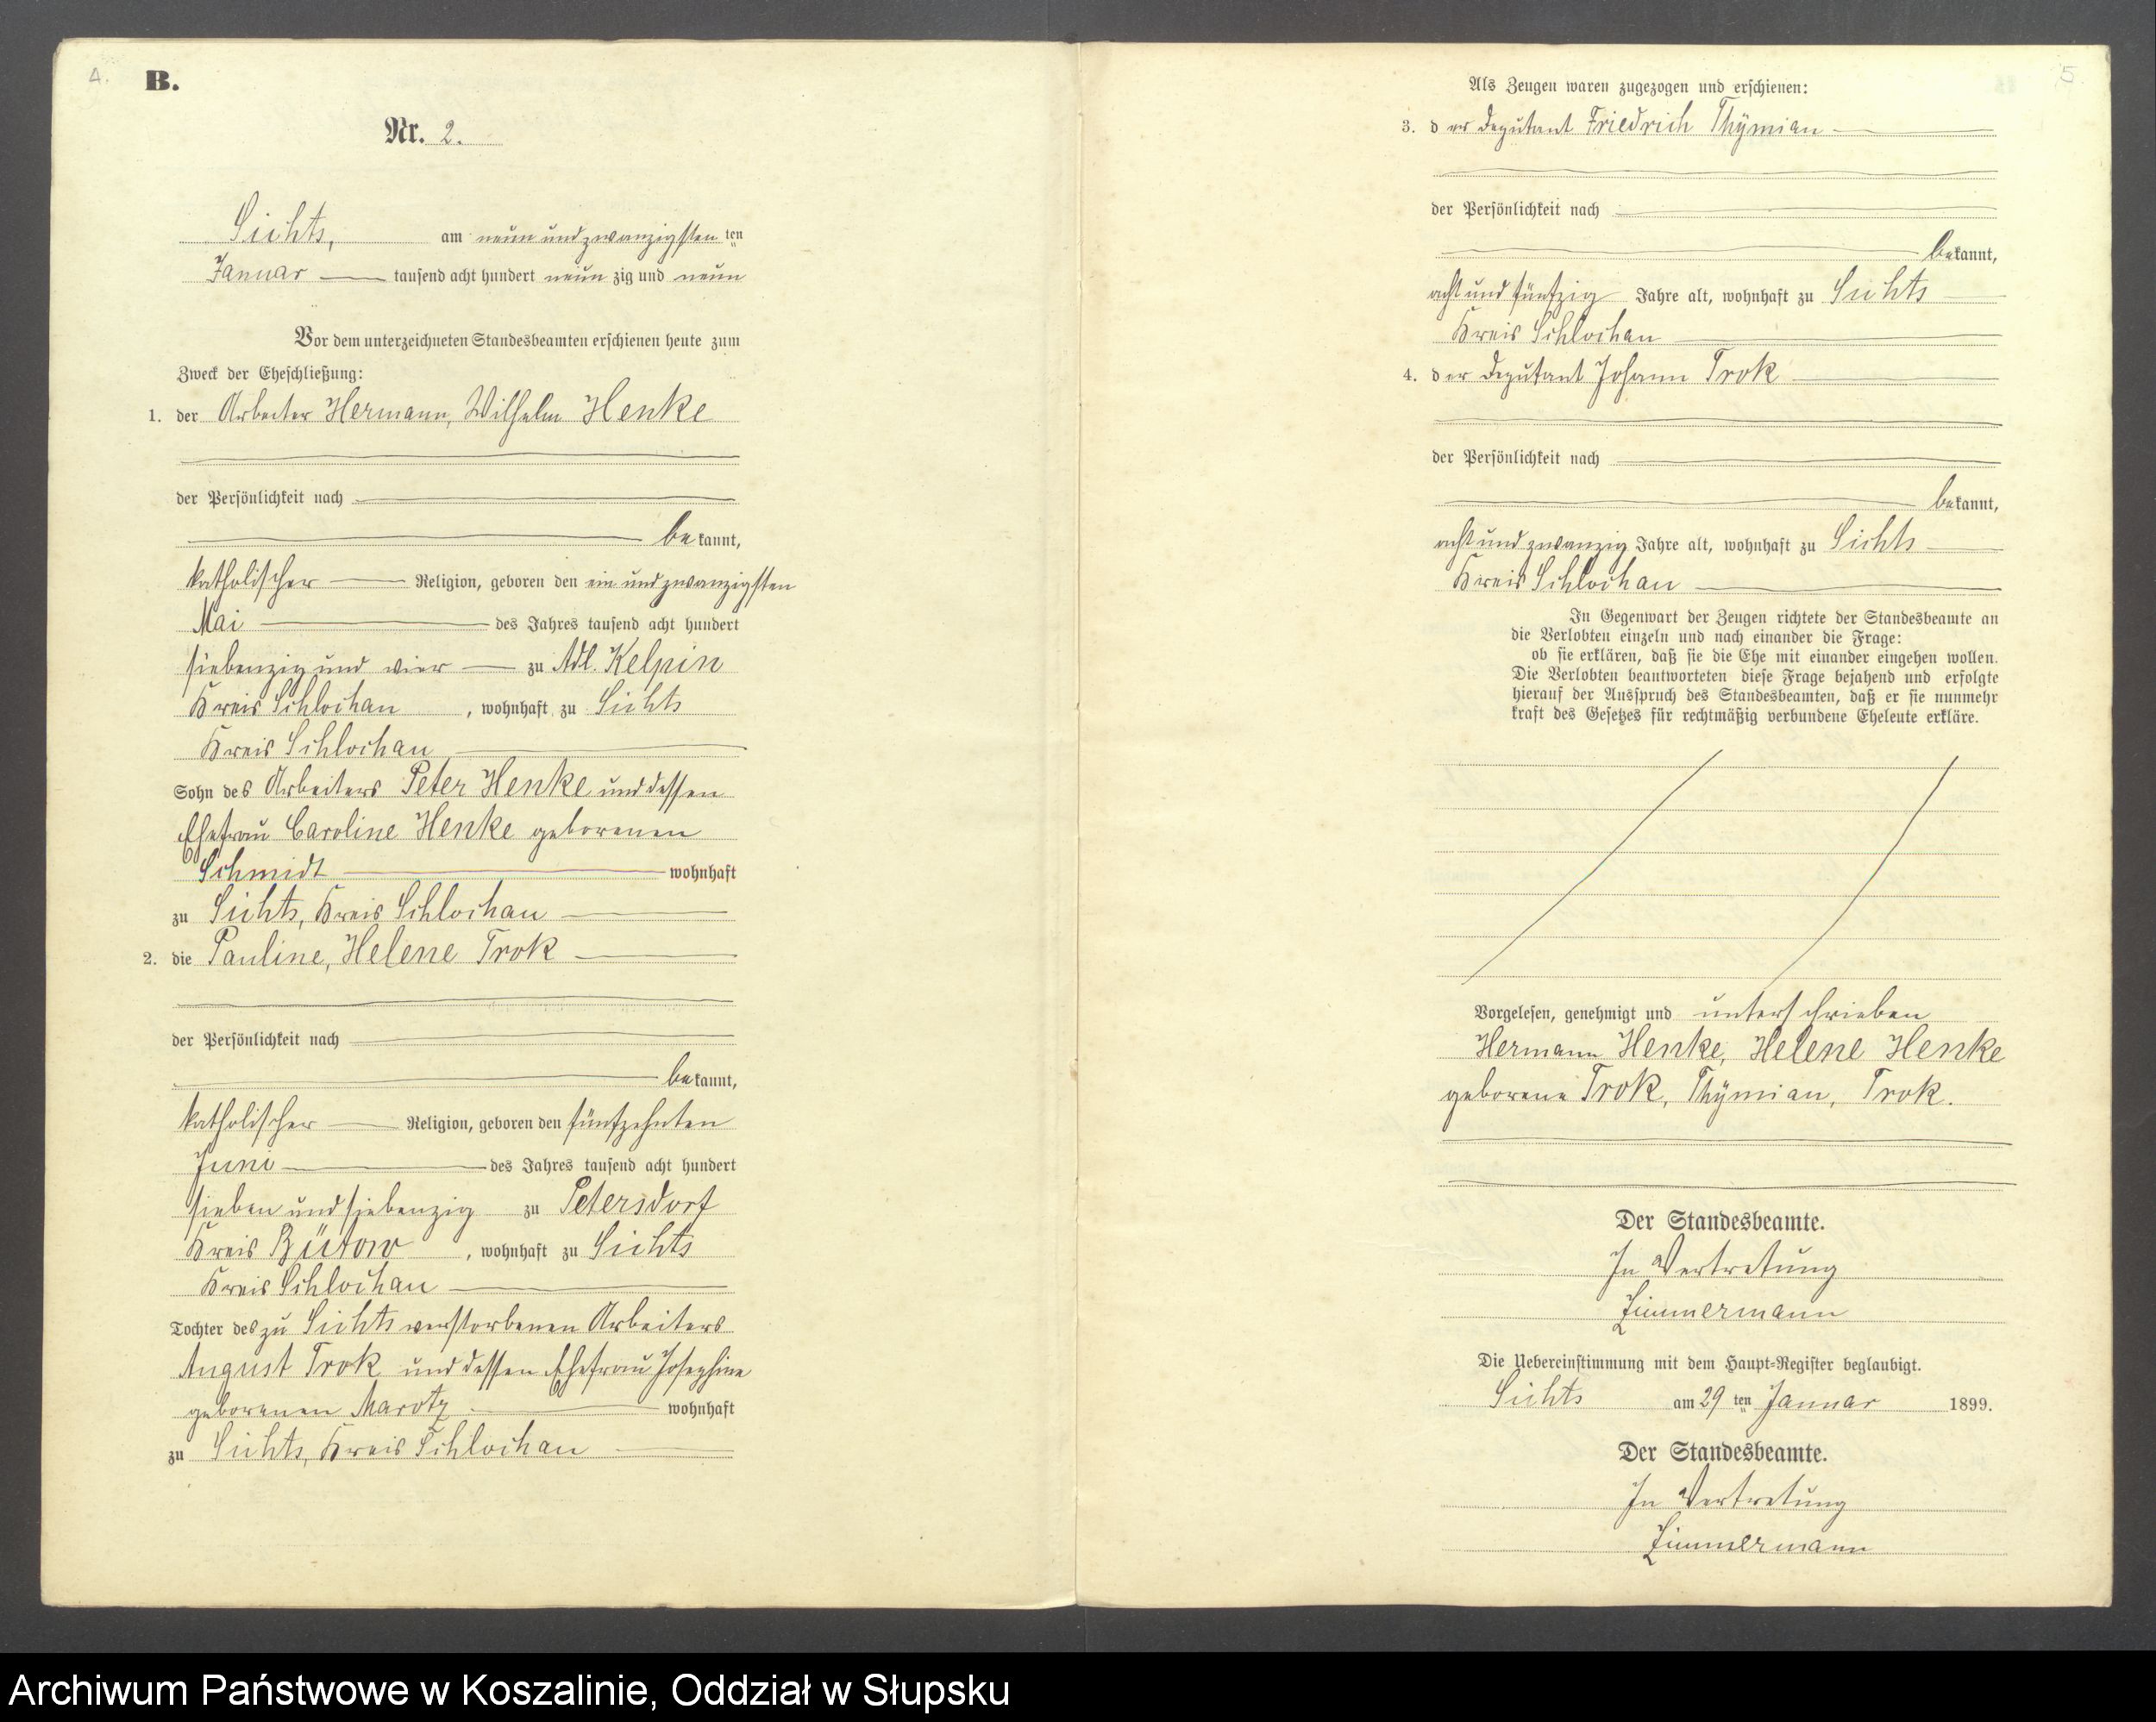 4.
B.
Nr. 2.
Sichts, am neun und zwanzigsten ten
Januar tausend acht hundert neun zig und neun
Vor dem unterzeichneten Standesbeamten erschienen heute zum
Zweck der Eheschließung:
1. der Arbeiter Hermann, Wilhelm Henke
der Persönlichkeit nach
bekannt,
katholischer Religion, geboren den ein und zwanzigsten
Mai des Jahres tausend acht hundert
siebenzig und vier zu Adl. Kelpin
Kreis Schlochau, wohnhaft zu Sichts
Kreis Schlochau
Sohn des Arbeiters Peter Henke und dessen
Ehefrau Caroline Henke geborenen
Schmidt wohnhaft
zu Sichts, Kreis Schlochau
2. die Pauline, Helene Trok
der Persönlichkeit nach
bekannt,
katholischer Religion, geboren den fünfzehnten
Juni des Jahres tausend acht hundert
sieben und siebenzig zu Petersdorf
Kreis Bütow, wohnhaft zu Sichts
Kreis Schlochau
Tochter des zu Sichts verstorbenen Arbeiters
August Trok und dessen Ehefrau Josephine
geborenen Marotz wohnhaft
zu Sichts, Kreis Schlochau
5.
Als Zeugen waren zugezogen und erschienen:
3. der Deputant Friedrich Thÿmian
der Persönlichkeit nach
bekannt,
acht und fünfzig Jahre alt, wohnhaft zu Sichts
Kreis Schlochau
4. der Deputant Johann Trok
der Persönlichkeit nach
bekannt,
acht und zwanzig Jahre alt, wohnhaft zu Sichts
Kreis Schlochau
In Gegenwart der Zeugen richtete der Standesbeamte an
die Verlobten einzeln und nach einander die Frage:
ob sie erklären, daß sie die Ehe mit einander eingehen wollen.
Die Verlobten beantworteten diese Frage bejahend und erfolgte
hierauf der Ausspruch des Standesbeamten, daß er sie nunmehr
kraft des Gesetzes für rechtmäßig verbundene Eheleute erkläre.
Vorgelesen, genehmigt und unterschrieben
Hermann Henke, Helene Henke
geborene Trok, Thÿmian, Trok.
Der Standesbeamte.
In Vertretung
Zimmermann
Die Uebereinstimmung mit dem Haupt=Register beglaubigt.
Sichts am 29 ten Januar 1899.
Der Standesbeamte.
In Vertretung
Zimmermann
Archiwum Państwowe w Koszalinie, Oddział w Słupsku